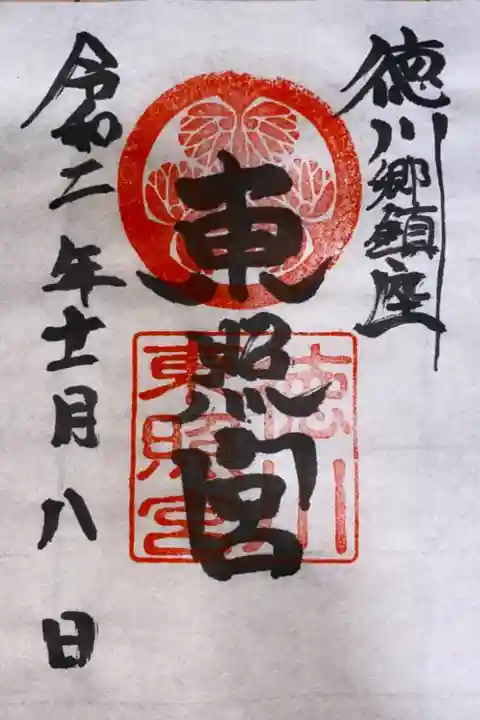 徳川郷鎮座
東照宮
徳川
東照宮
令和二年十一月八日